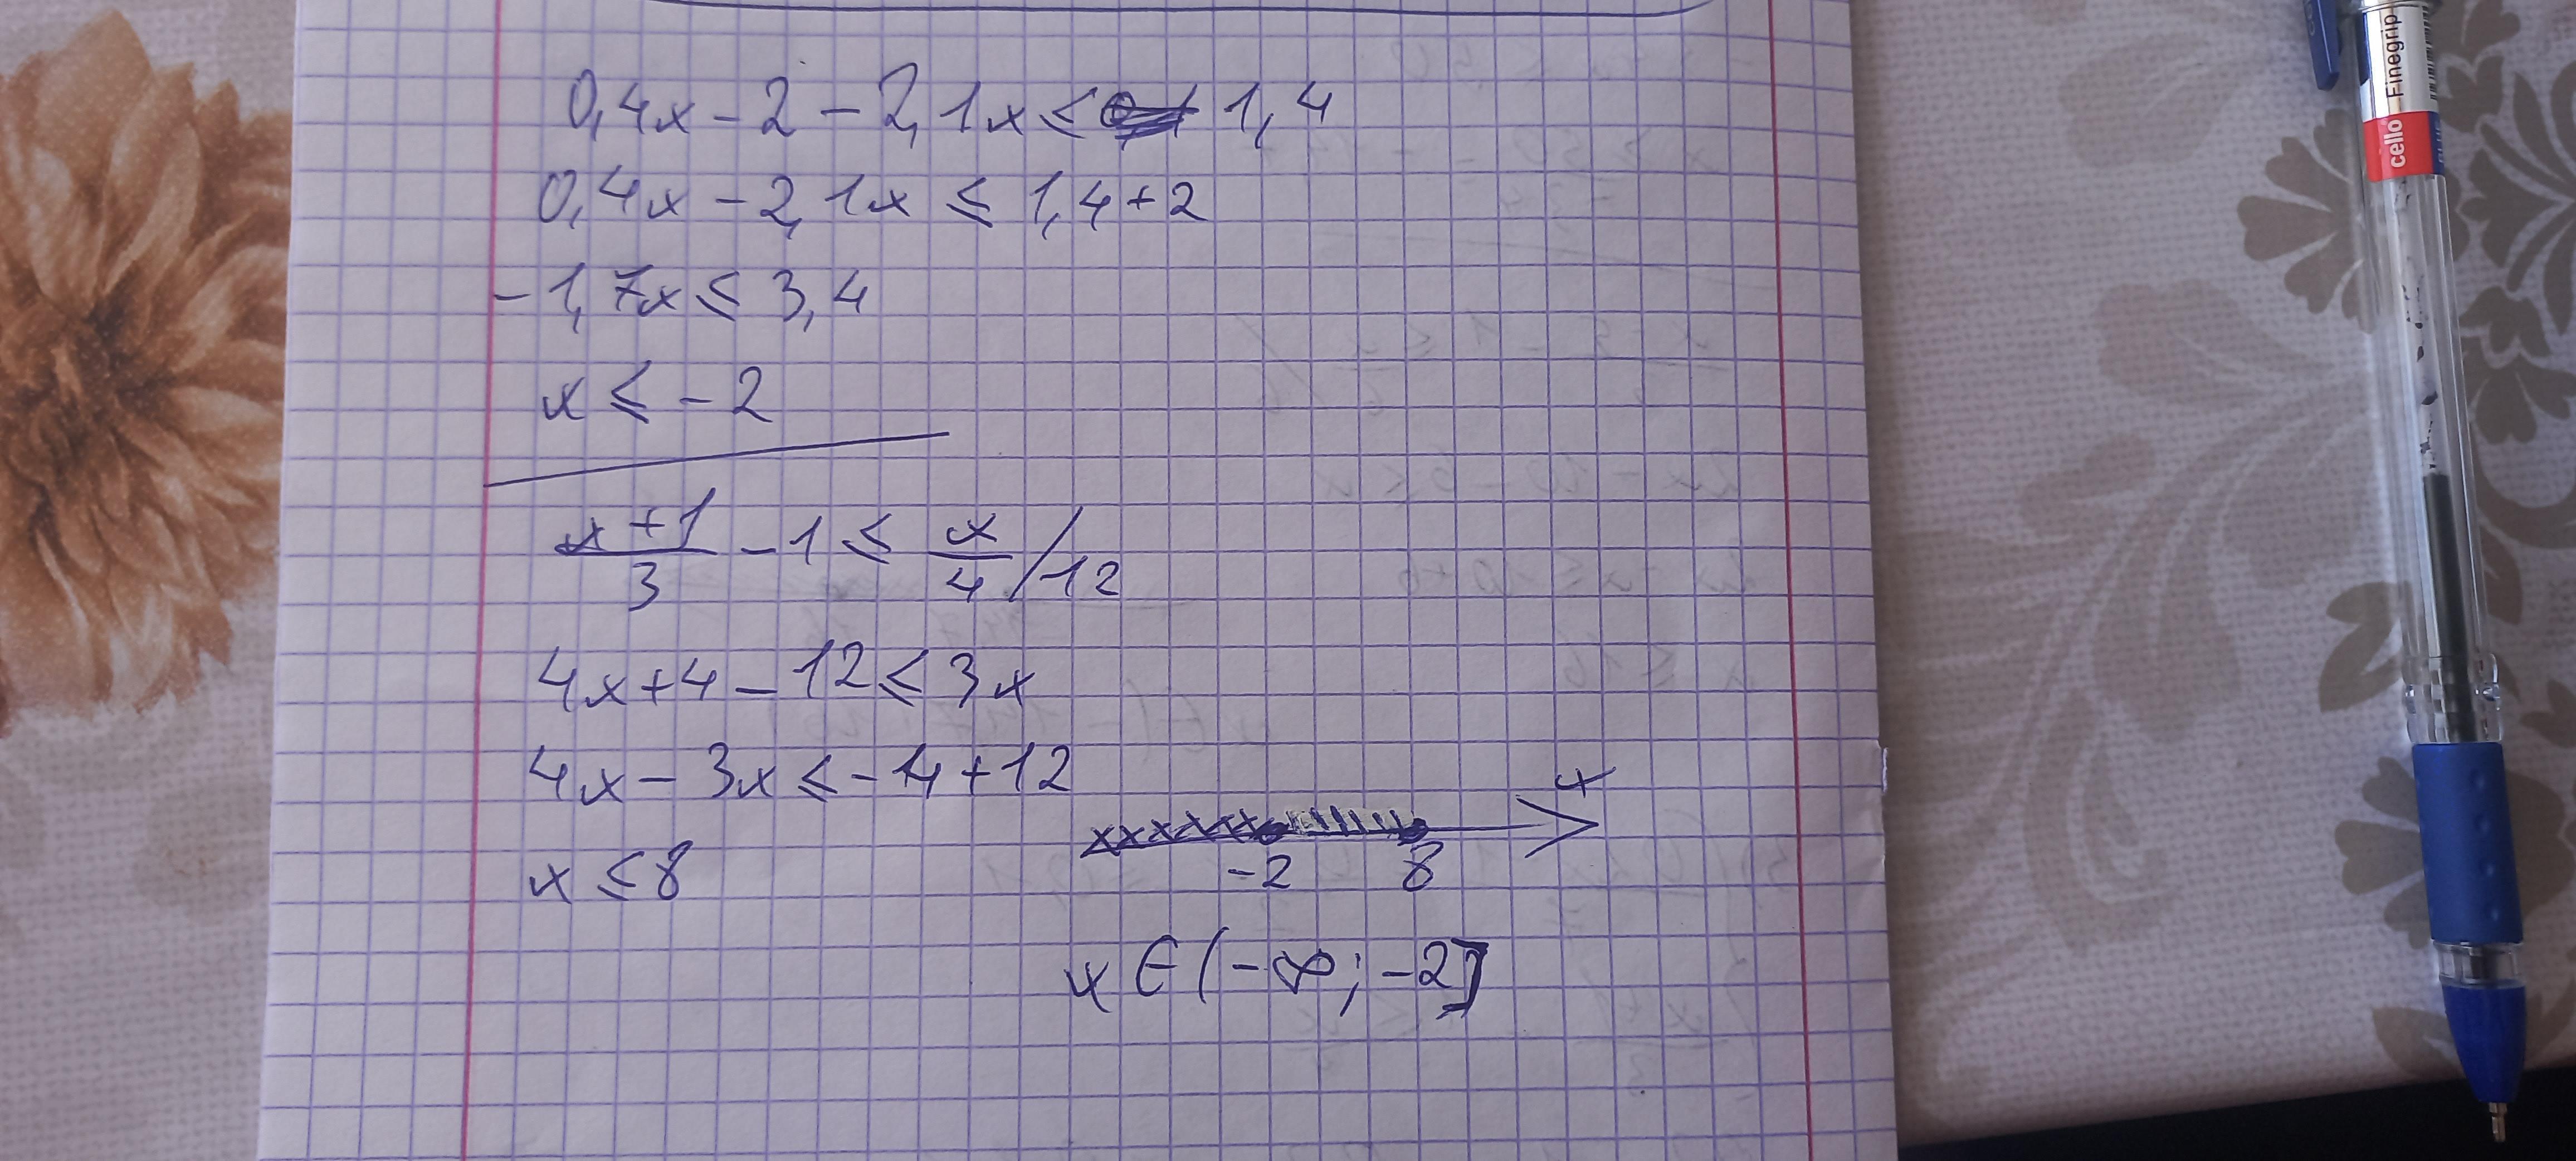 0,4x - 2 - 2,1x ≤ 1,4
0,4x - 2,1x ≤ 1,4 + 2
-1,7x ≤ 3,4
x ≤ -2
(x + 1)/3 - 1 ≤ x/4 /12
4x + 4 - 12 ≤ 3x
4x - 3x ≤ -4 + 12
x ≤ 8
x
-2 8
x ∈ (-∞; -2]
cello Finegrip